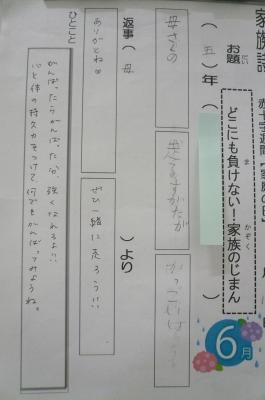 家族
赤十字週間「家庭の日」
お題
だい
どこにも負けない！家族のじまん
ま
かぞく
6月
（五）年（
）
母さんの
走るすがたが
かっこいい
返事（母
）より
ありがとね
ぜひ一緒に走ろう!!
ひとこと
がんばったらがんばった分、強くなれるよ!!
心と体の持久力をつけて何でもがんばってみようね。